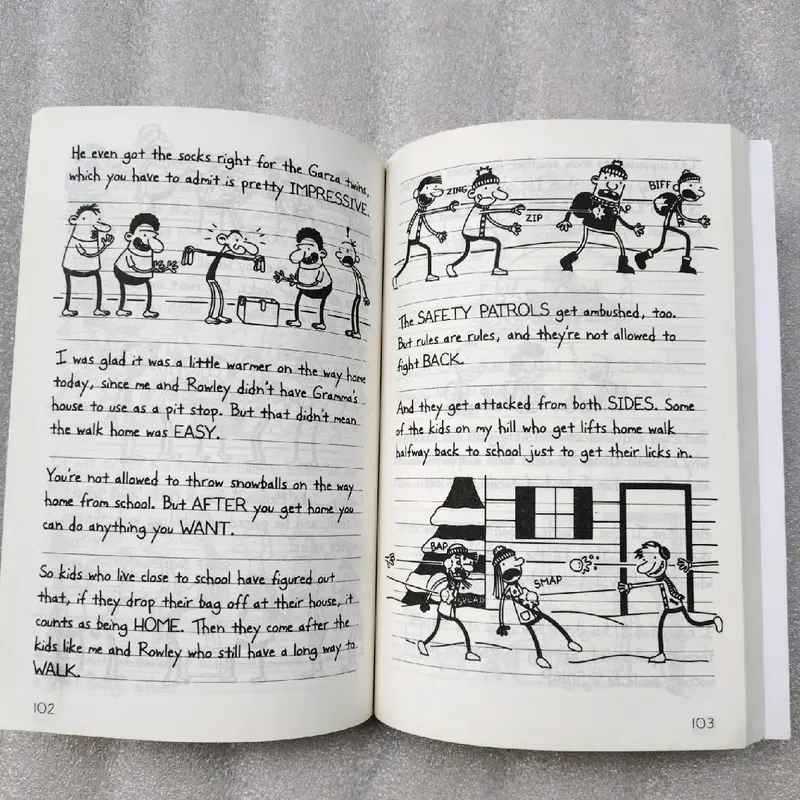 He even got the socks right for the Garza twins,
which you have to admit is pretty IMPRESSIVE.
!
I was glad it was a little warmer on the way home
today, since me and Rowley didn't have Gramma's
house to use as a pit stop. But that didn't mean
the walk home was EASY.
You're not allowed to throw snowballs on the way
home from school. But AFTER you get home you
can do anything you WANT.
So kids who live close to school have figured out
that, if they drop their bag off at their house, it
counts as being HOME. Then they come after the
kids like me and Rowley who still have a long way to
WALK.
102
ZING
ZIP
AP
BIFF
The SAFETY PATROLS get ambushed, too.
But rules are rules, and they're not allowed to
fight BACK.
And they get attacked from both SIDES. Some
of the kids on my hill who get lifts home walk
halfway back to school just to get their licks in.
BAP
SMAP
SPLAP
103